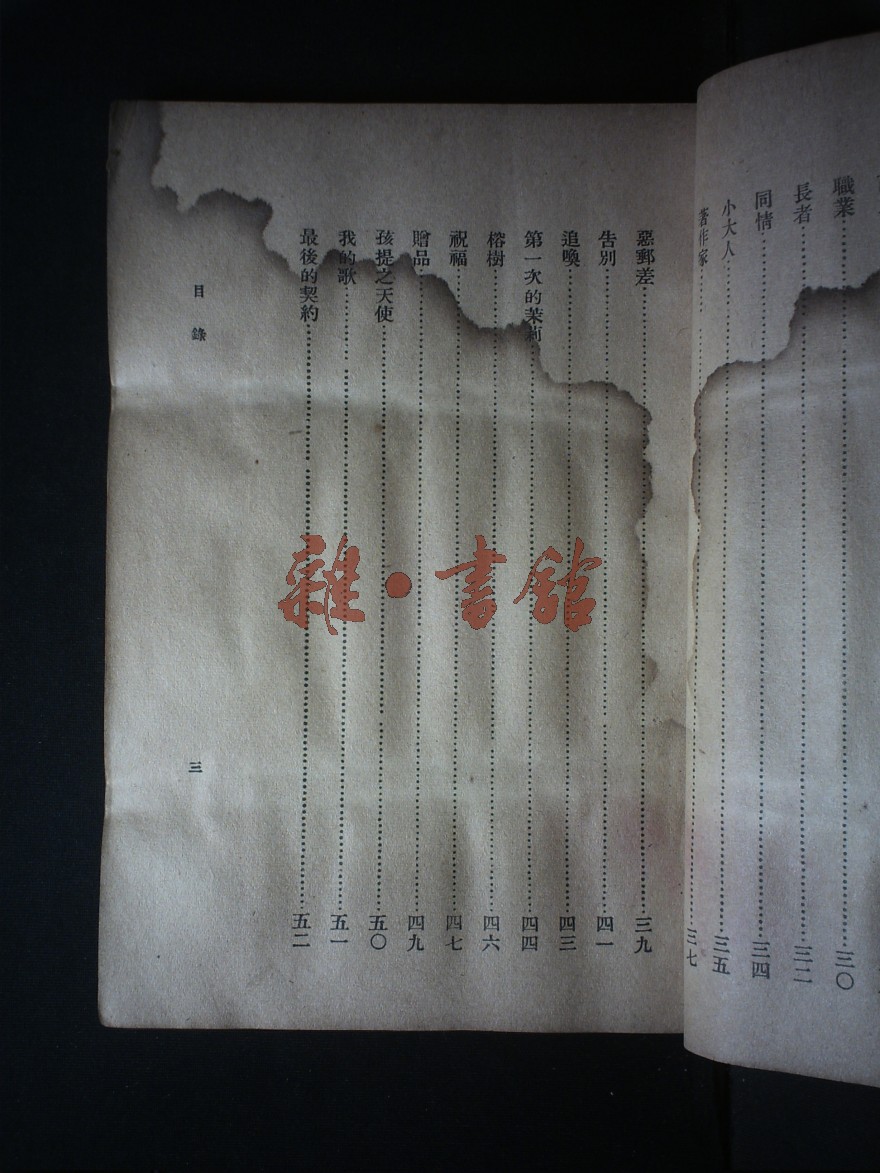 職業……三〇
長者……三二
同情……三四
小大人……三五
著作家……三七
惡郵差……三九
告別……四一
追喚……四三
第一次的茉莉……四四
榕樹……四六
祝福……四七
贈品……四九
孩提之天使……五〇
我的歌……五一
最後的契約……五二
目錄
三
雜·書館